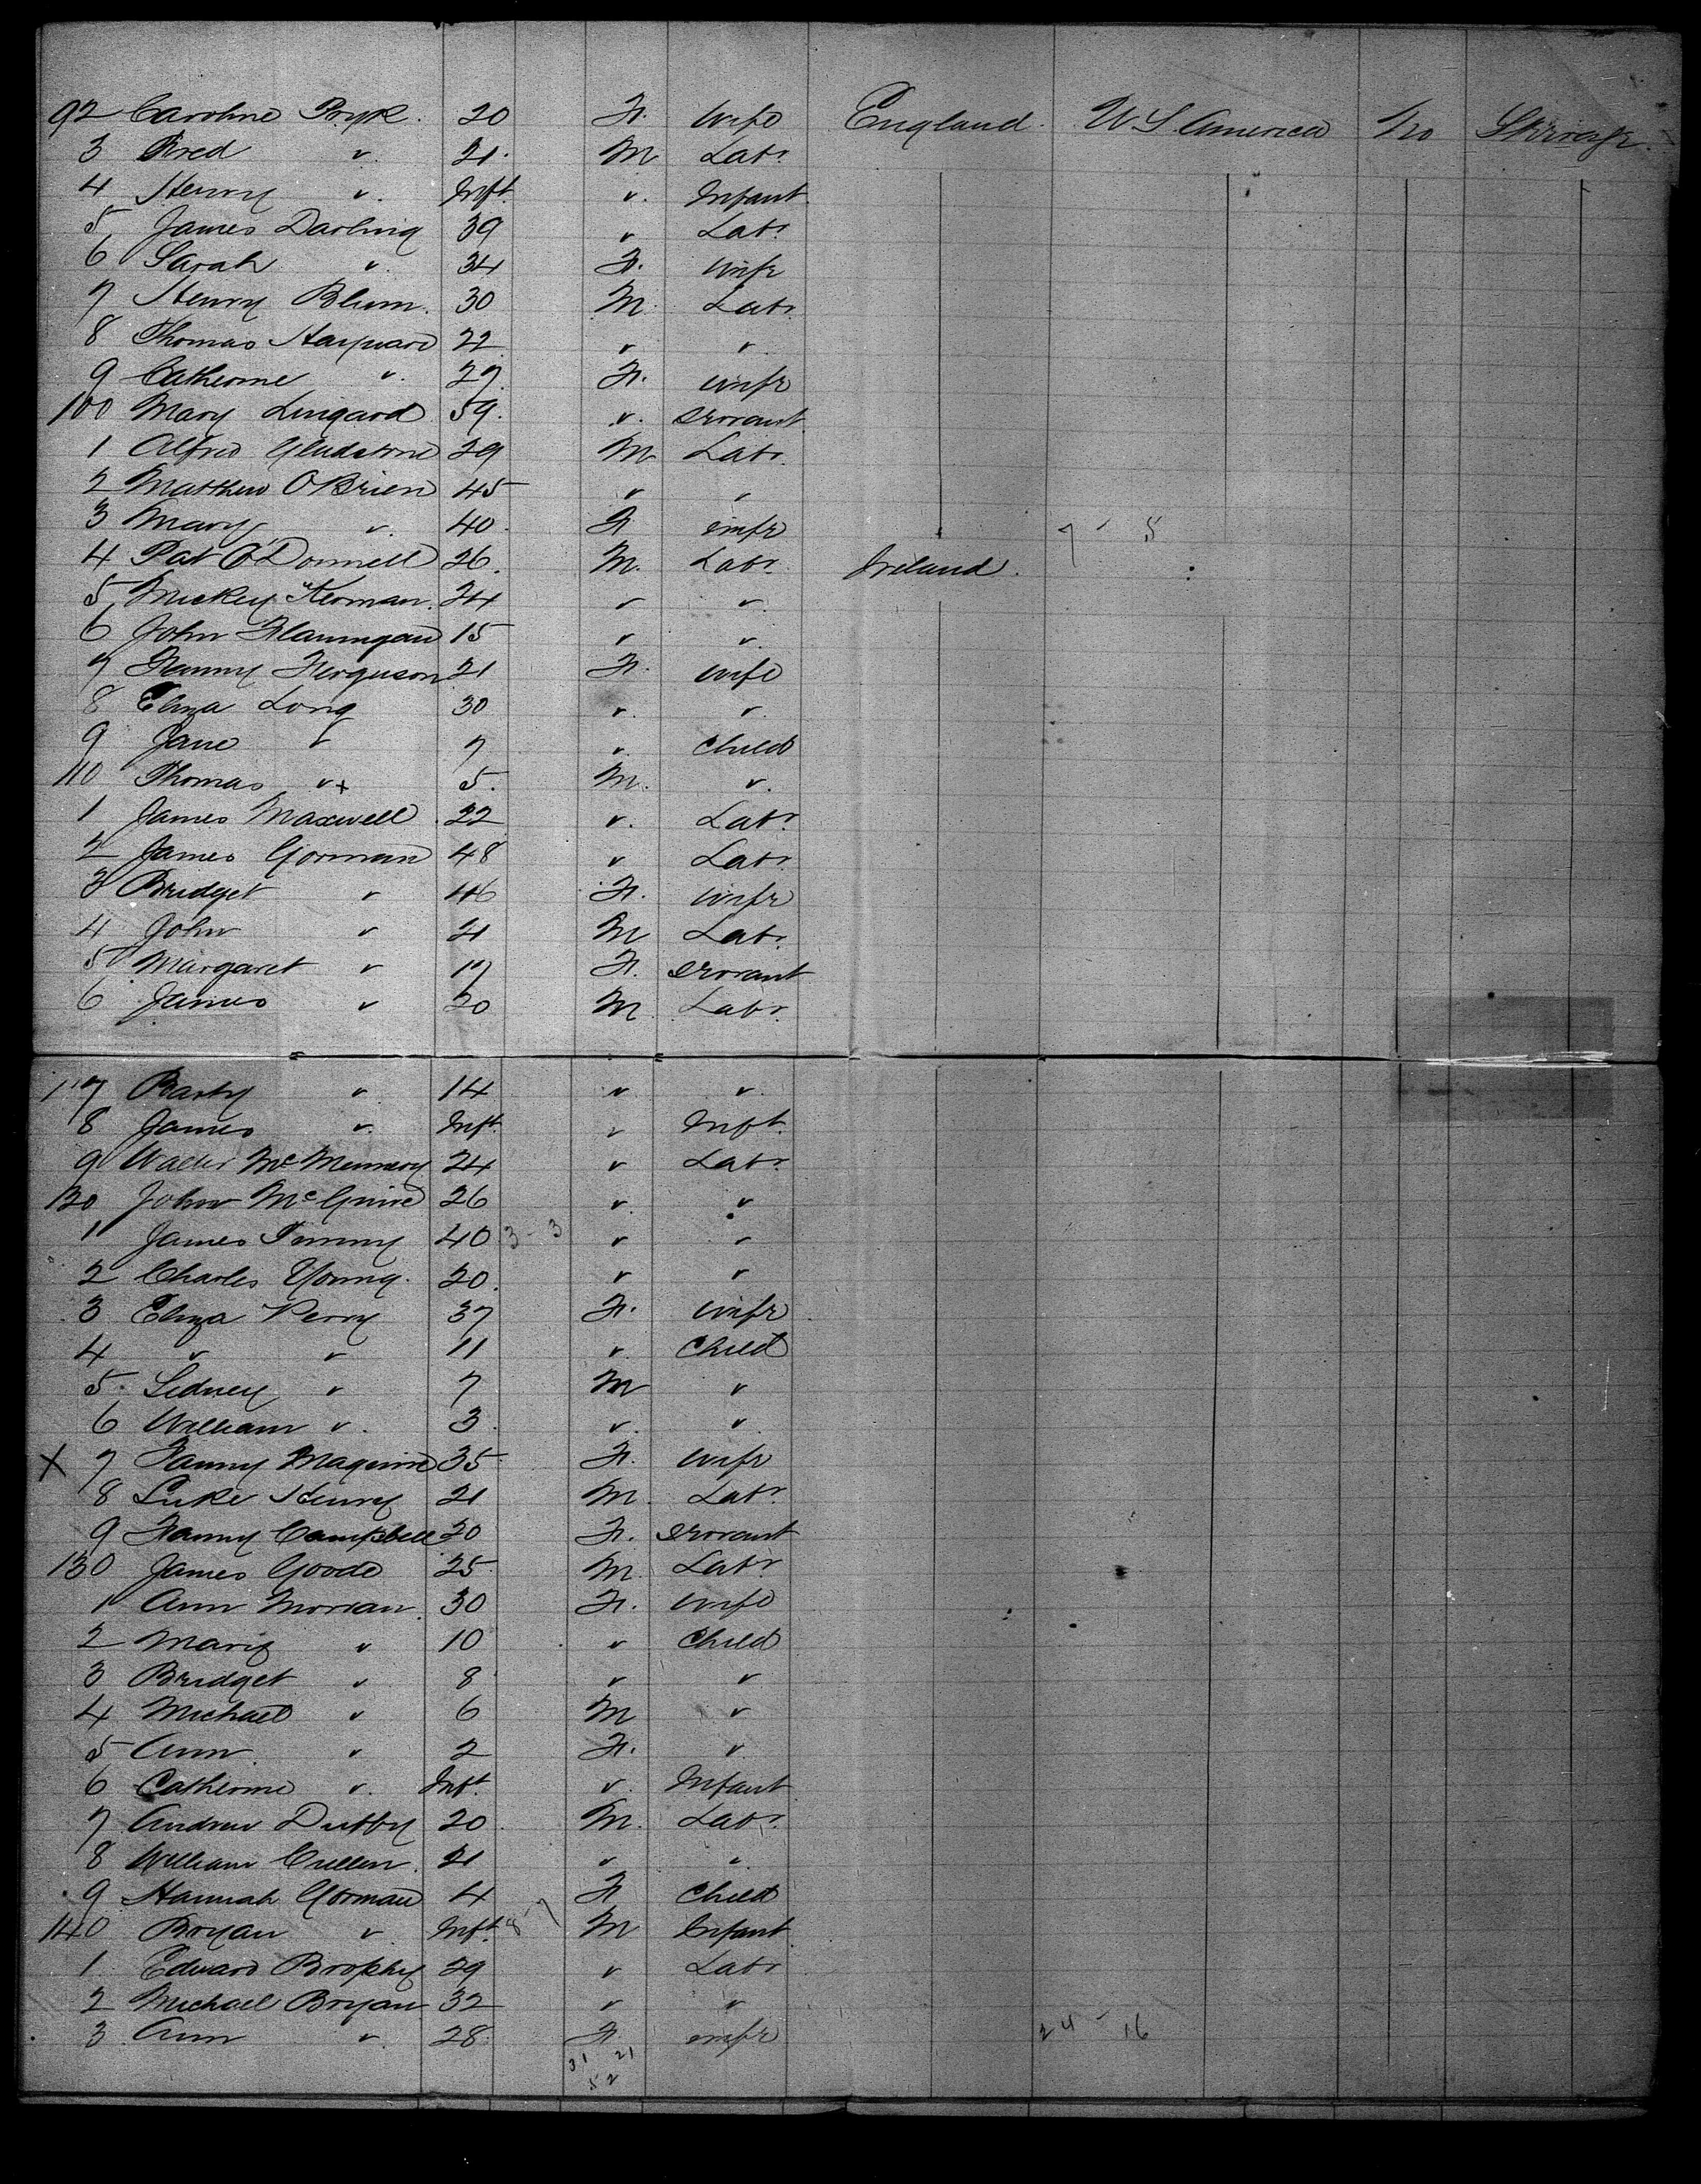 92 Caroline Pryk. 20 F. wife England. U S America No Steerage.
3 Fred " 21. M Labr.
4 Henry " Inft. " Infant
5 James Darling 39 " Labr.
6 Sarah " 34 F. wife
7 Henry Blum. 30 M. Labr.
8 Thomas Hayward 22 " "
9 Catherine " 27. F. wife
100 Mary Lingard 59. " Servant
1 Alfred Gladstone 29 M Labr.
2 Matthew O'Brien 45 " "
3 Mary " 40. F wife 7 - 5
4 Pat O'Donnell 26. M. Labr. Ireland.
5 Mickey Kernan. 24 " "
6 John Flannigan 15 " "
7 Fanny Ferguson 21 F. wife
8 Eliza Long 30 " "
9 Jane " 7 " Child
110 Thomas "x 5. M. "
1 James Maxwell 22 " Labr.
2 James Gorman 48 " Labr.
3 Bridget " 46 F. wife
4 John " 21 M Labr.
5 Margaret " 17 F. Servant
6 James " 20 M Labr.
117 Barty " 14 " "
8 James " Inft. " Inft.
9 Walter McMemmery 24 " Labr.
120 John McGuire 26 " "
1 James Timmy 40 3 - 3 " "
2 Charles Young. 20. " "
3 Eliza Perry 37 F. wife
4 " " 11 " Child
5. Sidney " 7 M "
6 William " 3. " "
X 7 Fanny Maguire 35 F. wife
8 Luke Henry 21 M. Labr.
9 Fanny Campbell 20 F. Servant
130 James Goode 25 M Labr.
1 Ann Morran 30 F. wife
2 Maria " 10 " Child
3 Bridget " 8 " "
4 Michael " 6 M "
5 Ann " 2 F. "
6 Catherine " Inft. " Infant
7 Andrew Duffy 20. M. Labr.
8 William Cullen. 21 " "
9 Hannah Gorman 4 F Child
140 Bryan " Inft. 8 - 7 M Infant
1 Edward Brophy 29 " Labr
2 Michael Bryan 32 " "
3 Ann " 28. F. wife 24 - 16
31 21
52